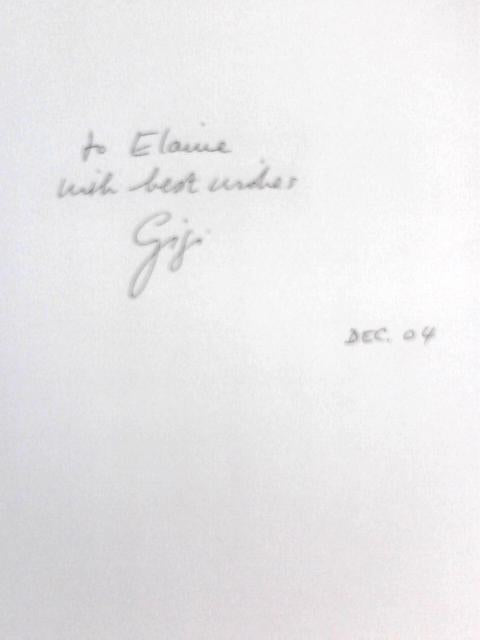 to Elaine
with best wishes
Gigi
DEC. 04